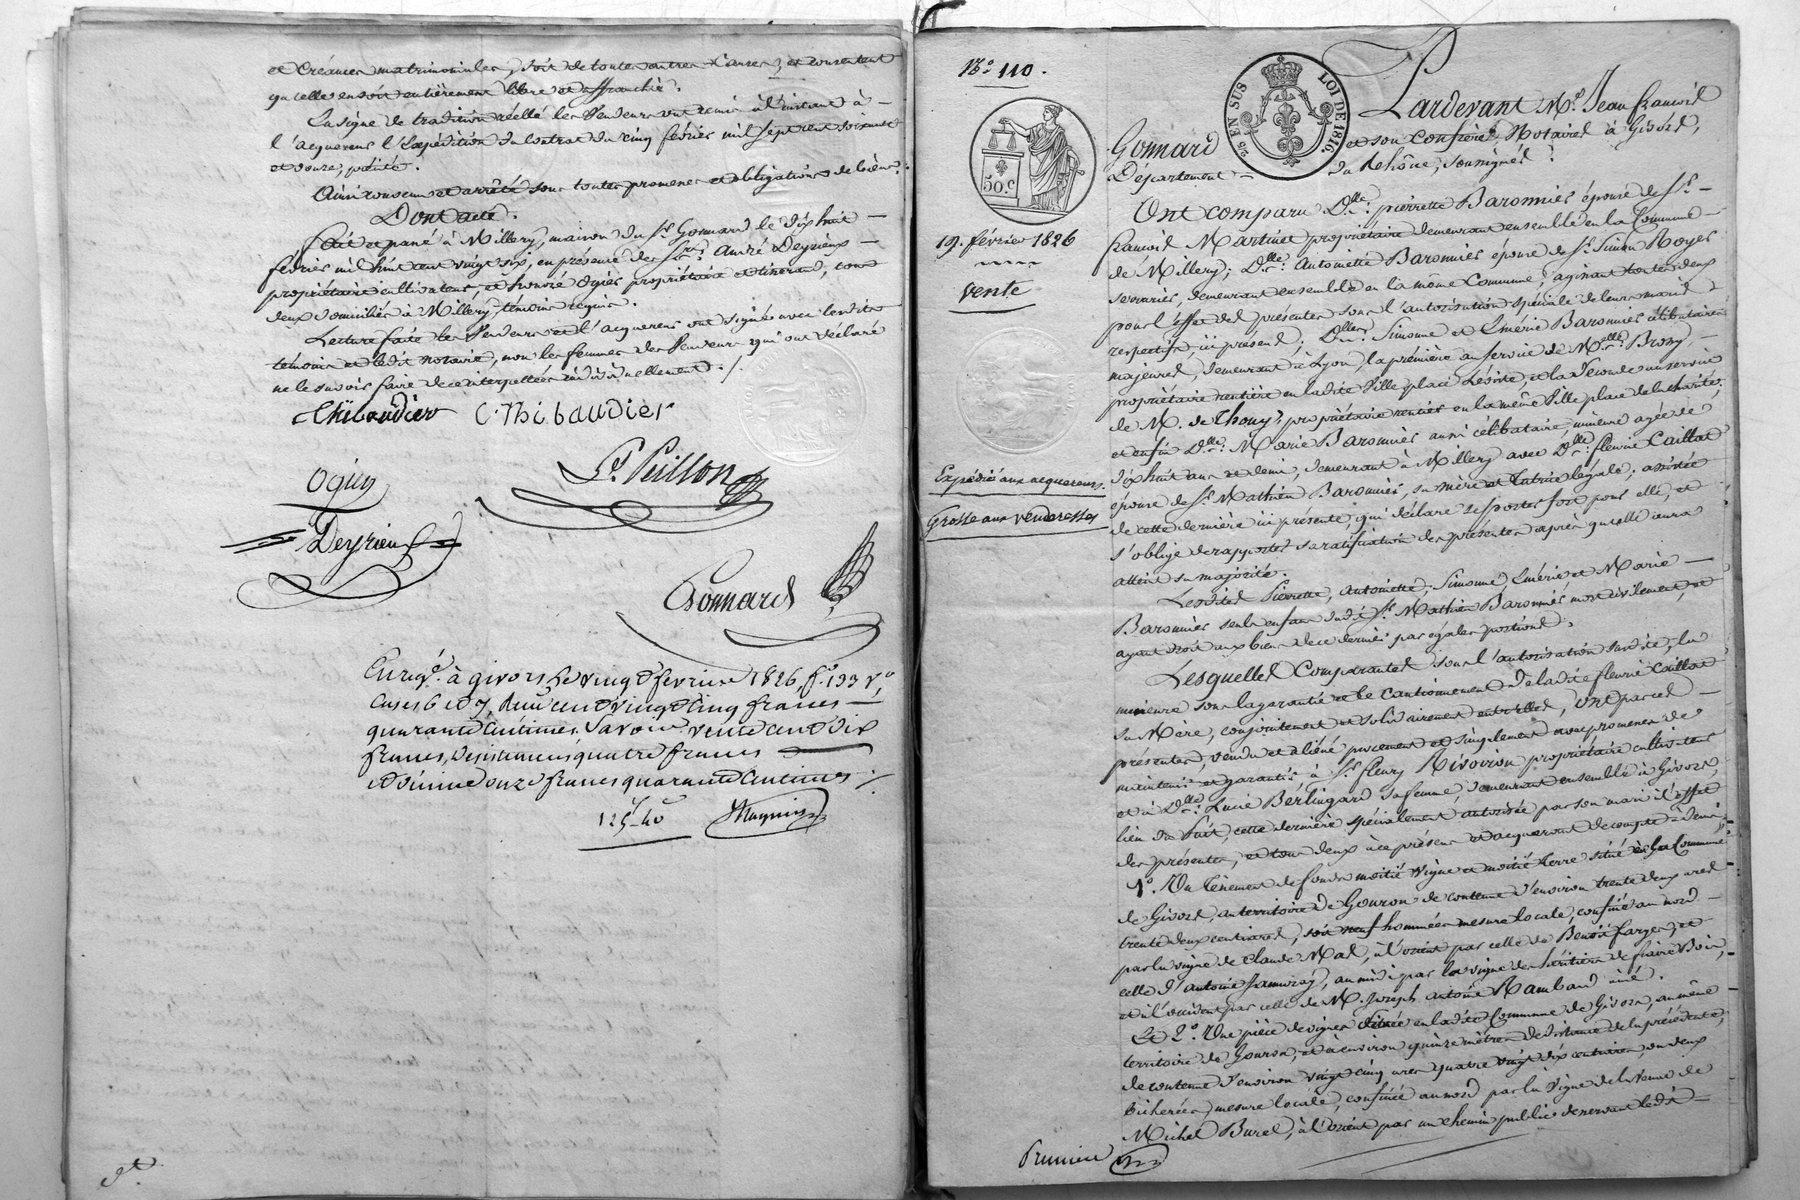 et Créances matrimoniales, soit de toutes autres causes, et consentent
qu'elle en soit entièrement libre et affranchie.
La signe de tradition réelle les Vendeurs ont remis à l'instant à
l'acquereur l'Expédition du Contrat du cinq février mil sept cent soixante
et onze, précité.
Ainsi convenu et arrêté sous toutes promesses et obligations de biens.
Dont acte.
fait et passé à Millery, maison du Sr. Gonnard le dix huit
février mil huit cent vingt six, en présence des Srs. André Deyrieux
propriétaire cultivateur, et honoré Ogier propriétaire et tisserand, tous
deux domiciliés à Millery, témoins requis.
Lecture faite les Vendeurs et l'acquereur ont signé avec lesdits
témoins et ledit notaire, non les femmes des Vendeurs qui ont déclaré
ne le savoir faire de ce interpellées individuellement ./.
Thibaudier C. Thibaudier
Ogier
Deyrieux
Gonnard
Enregé. à givors, le vingt février 1826, fo. 133 vo.
Cases 6 et 7, Reçu cent vingt cinq francs
quarante Centimes. Savoir vente cent dix
francs, Désistances quatre francs
et dixième onze francs quarante Centimes ./.
125-40
No. 110.
50.c
25 EN SUS
LOI DE 1816.
19. février 1826
Vente
Expédié aux acquereurs.
Grosse aux venderesses
Pardevant Me. Jean françois
Gonnard et son confrère, Notaires à Givors,
Département du Rhône, soussignés :
Ont comparu Dlle. pierrette Baronnier épouse de Sr.
françois Martinet propriétaire demeurant ensemble en la Commune
de Millery; Dlle. Antoinette Baronnier épouse de Sr. Simon Royer
demeurant ensemble en la même Commune, agissant toutes deux
pour l'effet des présentes sous l'autorisation spéciale de leurs maris
respectifs, ici présens; Dlles. Simonne et Emérie Baronnier célibataires
majeures, demeurant à Lyon, la première au service de Melle. Brossy,
propriétaire rentière en ladite Ville place Léviste, et la seconde au service
de M. de Thouy, propriétaire rentier en la même Ville place de la charité,
et enfin Dlle. Marie Baronnier aussi célibataire, mineure agée de
dix huit ans et demi, demeurant à Millery avec Dlle. fleurie Caillot
épouse de Sr. Mathieu Baronnier, sa mère et tutrice légale; assistée
de cette dernière ici présente, qui déclare se porter fort pour elle, et
s'oblige de rapporter sa ratification des présentes après qu'elle aura
atteint sa majorité.
Lesdites Pierrette, Antoinette, Simonne, Emérie et Marie
Baronnier seuls enfans dudit Sr. Mathieu Baronnier mort civilement, et
ayant droit aux biens de ce dernier par égales portions.
Lesquelles Comparantes sous l'autorisation susdite, la
mineure sous la garantie et le cautionnement de ladite fleurie Caillot
sa Mère, conjointement et solidairement entr'elles, ont par ces
présentes, vendu et aliéné purement et simplement avec promesse de
maintenir et garantir à Sr. fleury Rivoiron propriétaire cultivateur
et à Dlle. Lucie Berlingard sa femme, demeurant ensemble à Givors,
lieu du fait, cette dernière spécialement autorisée par son mari à l'effet
des présentes, et tous deux à ce présens et acquerant de compte à demi,
1o. Un tènement de fonds moitié vigne et moitié terre situé en la Commune
de Givors, au territoire de Gouron de contenue d'environ trente deux ares
trente deux centiares, soit neuf hommées mesure locale, confiné au nord
par la vigne de Claude Mas, à l'orient par celle de Benoît farges, et
celle d'antoine Jamoray, au midi par la vigne des héritiers de
et à l'occident par celle de M. Joseph antoine Rambaud ainé.
Et 2o. Une pièce de vignes située en ladite Commune de Givors, au même
territoire de Gouron, et à environ quinze mètres de distance de la précédente,
de contenue d'environ vingt cinq ares quatre vingt dix centiares, ou deux
bicherées, mesure locale, confinée au nord par la vigne de la veuve de
Michel Burel, à l'orient par un chemin public desservant ledit
Première